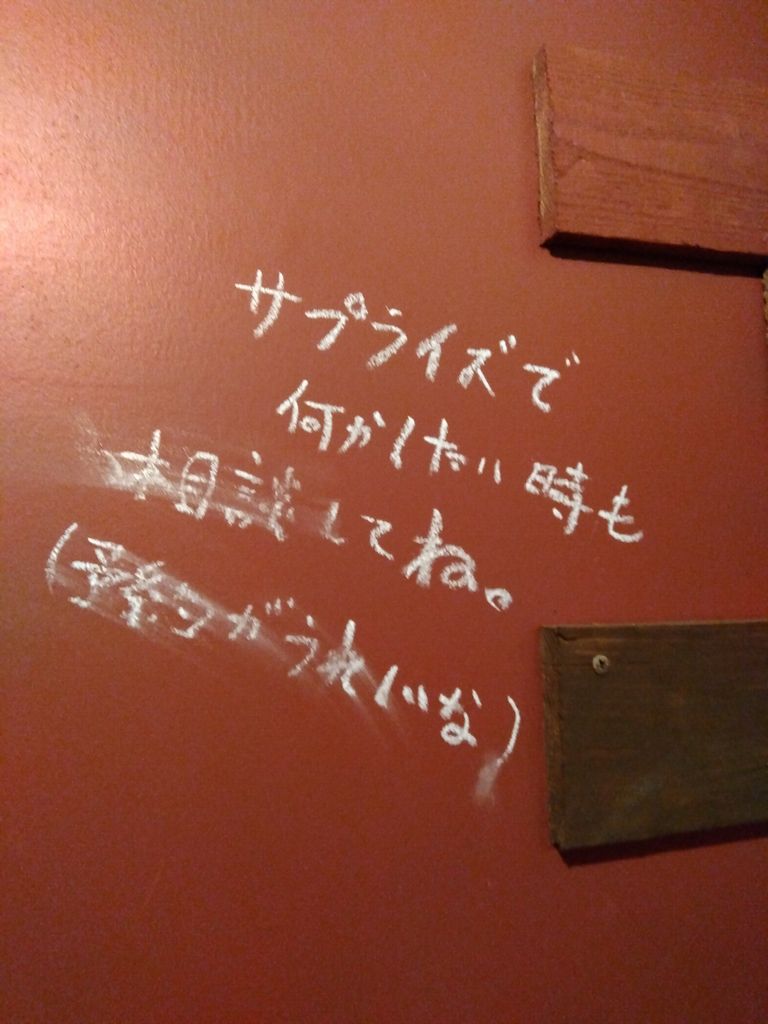 サプライズで
何かしたい時も
相談してね。
(予約がうれしいな)